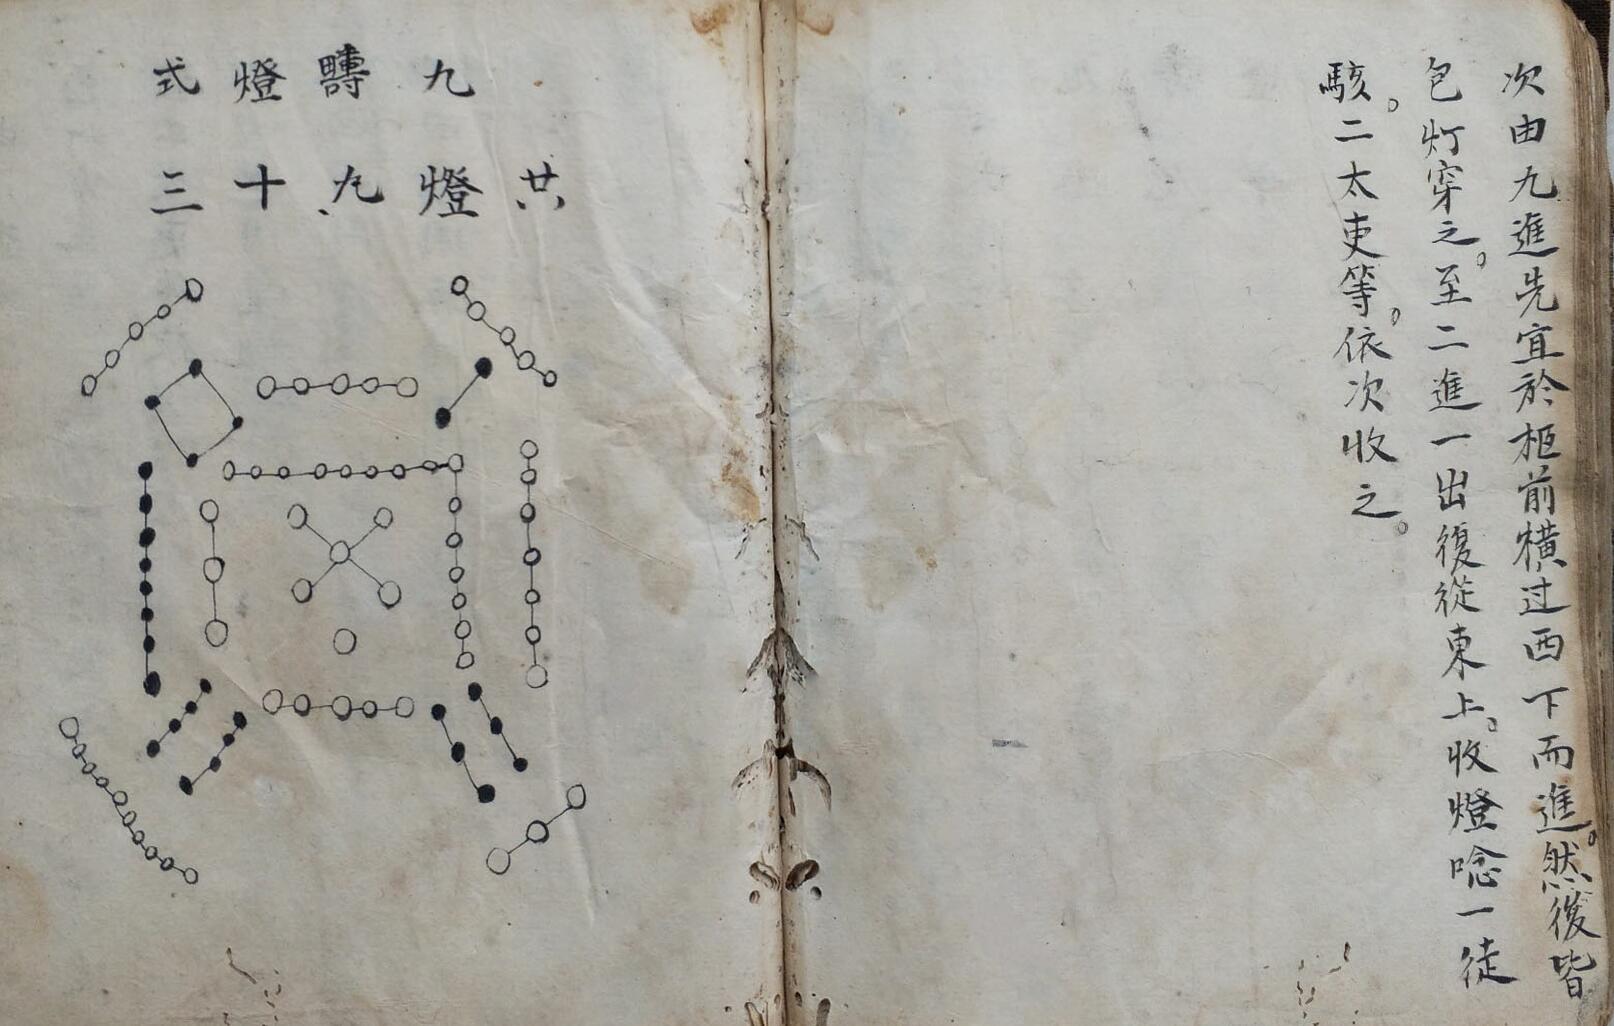 次由九進先宜於柩前橫过西下而進。然後皆
包灯穿之。至二進一出復從東上。收燈唸一徒
駭。二太吏等。依次收之。
九疇燈式
共燈九十三